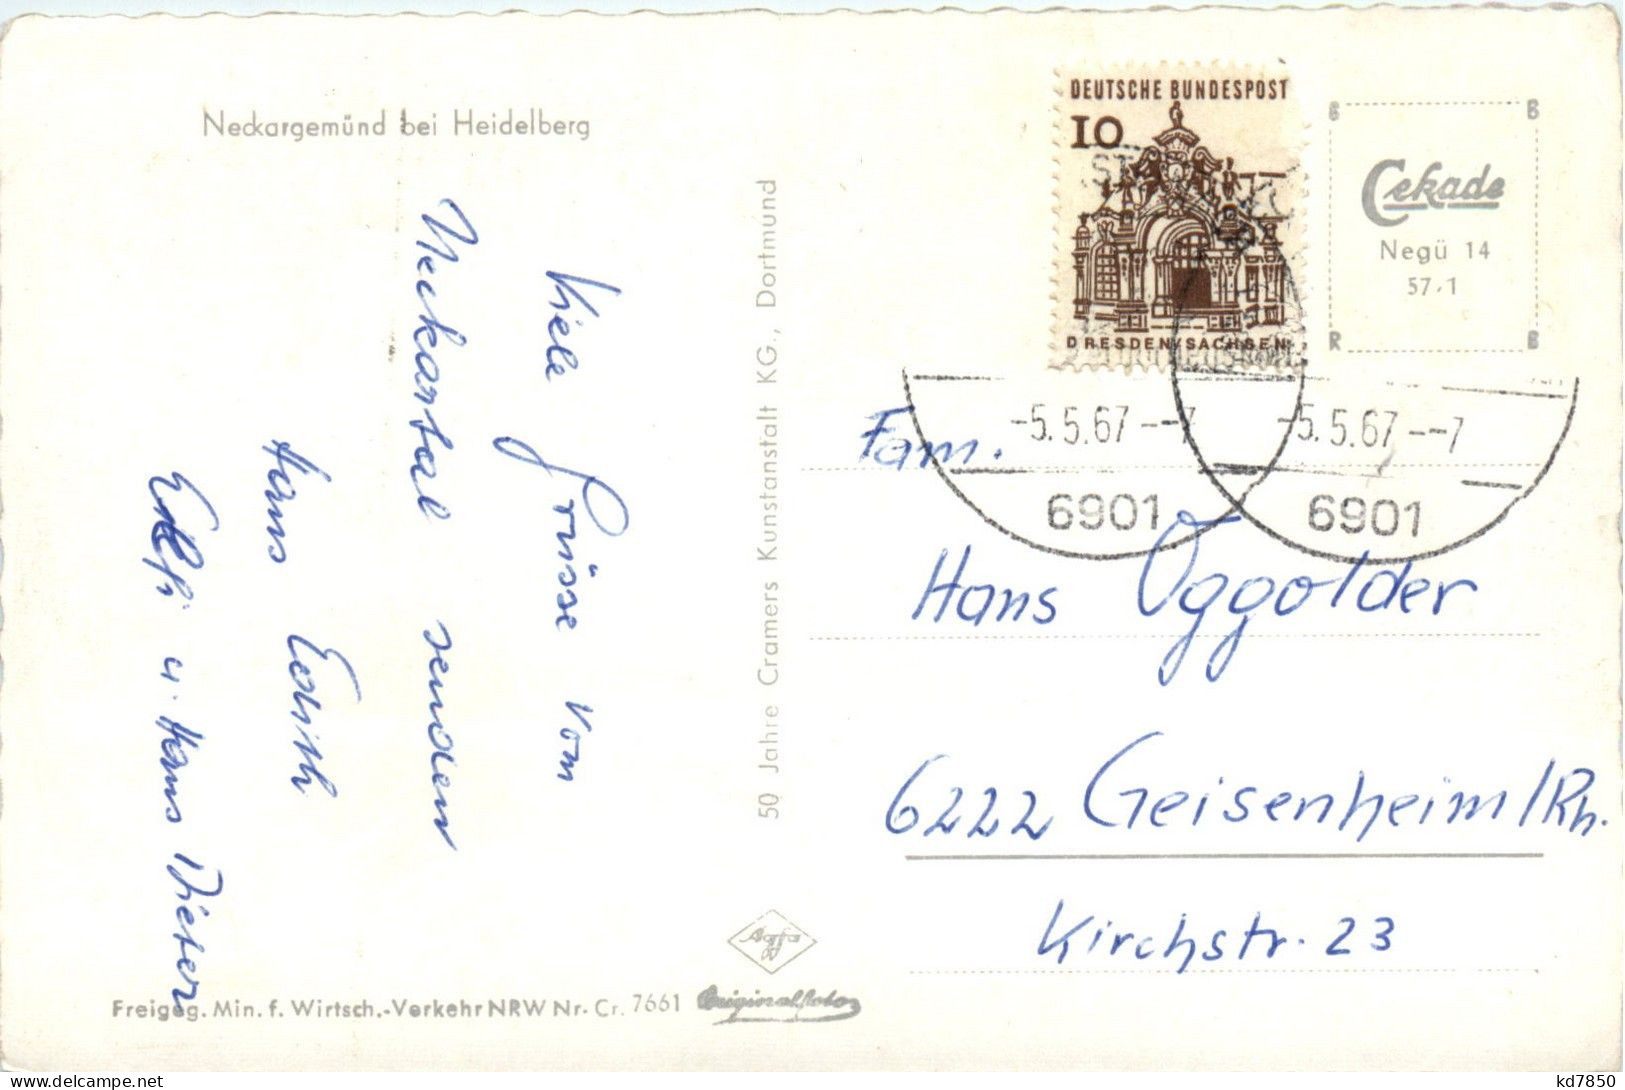 Neckargemünd bei Heidelberg
Viele Grüsse vom
Neckartal senden
Hans Edith
u. Hans Dieter
Freigeg. Min. f. Wirtsch.-Verkehr NRW Nr. Cr. 7661
50 Jahre Cramers Kunstanstalt KG., Dortmund
Agfa
Originalfoto
DEUTSCHE BUNDESPOST
10
DRESDEN/SACHSEN
B B
Cekade
Negü 14
57.1
R B
-5.5.67--7
6901
-5.5.67--7
6901
Fam.
Hans Oggolder
6222 Geisenheim/Rh.
Kirchstr. 23
kd7850